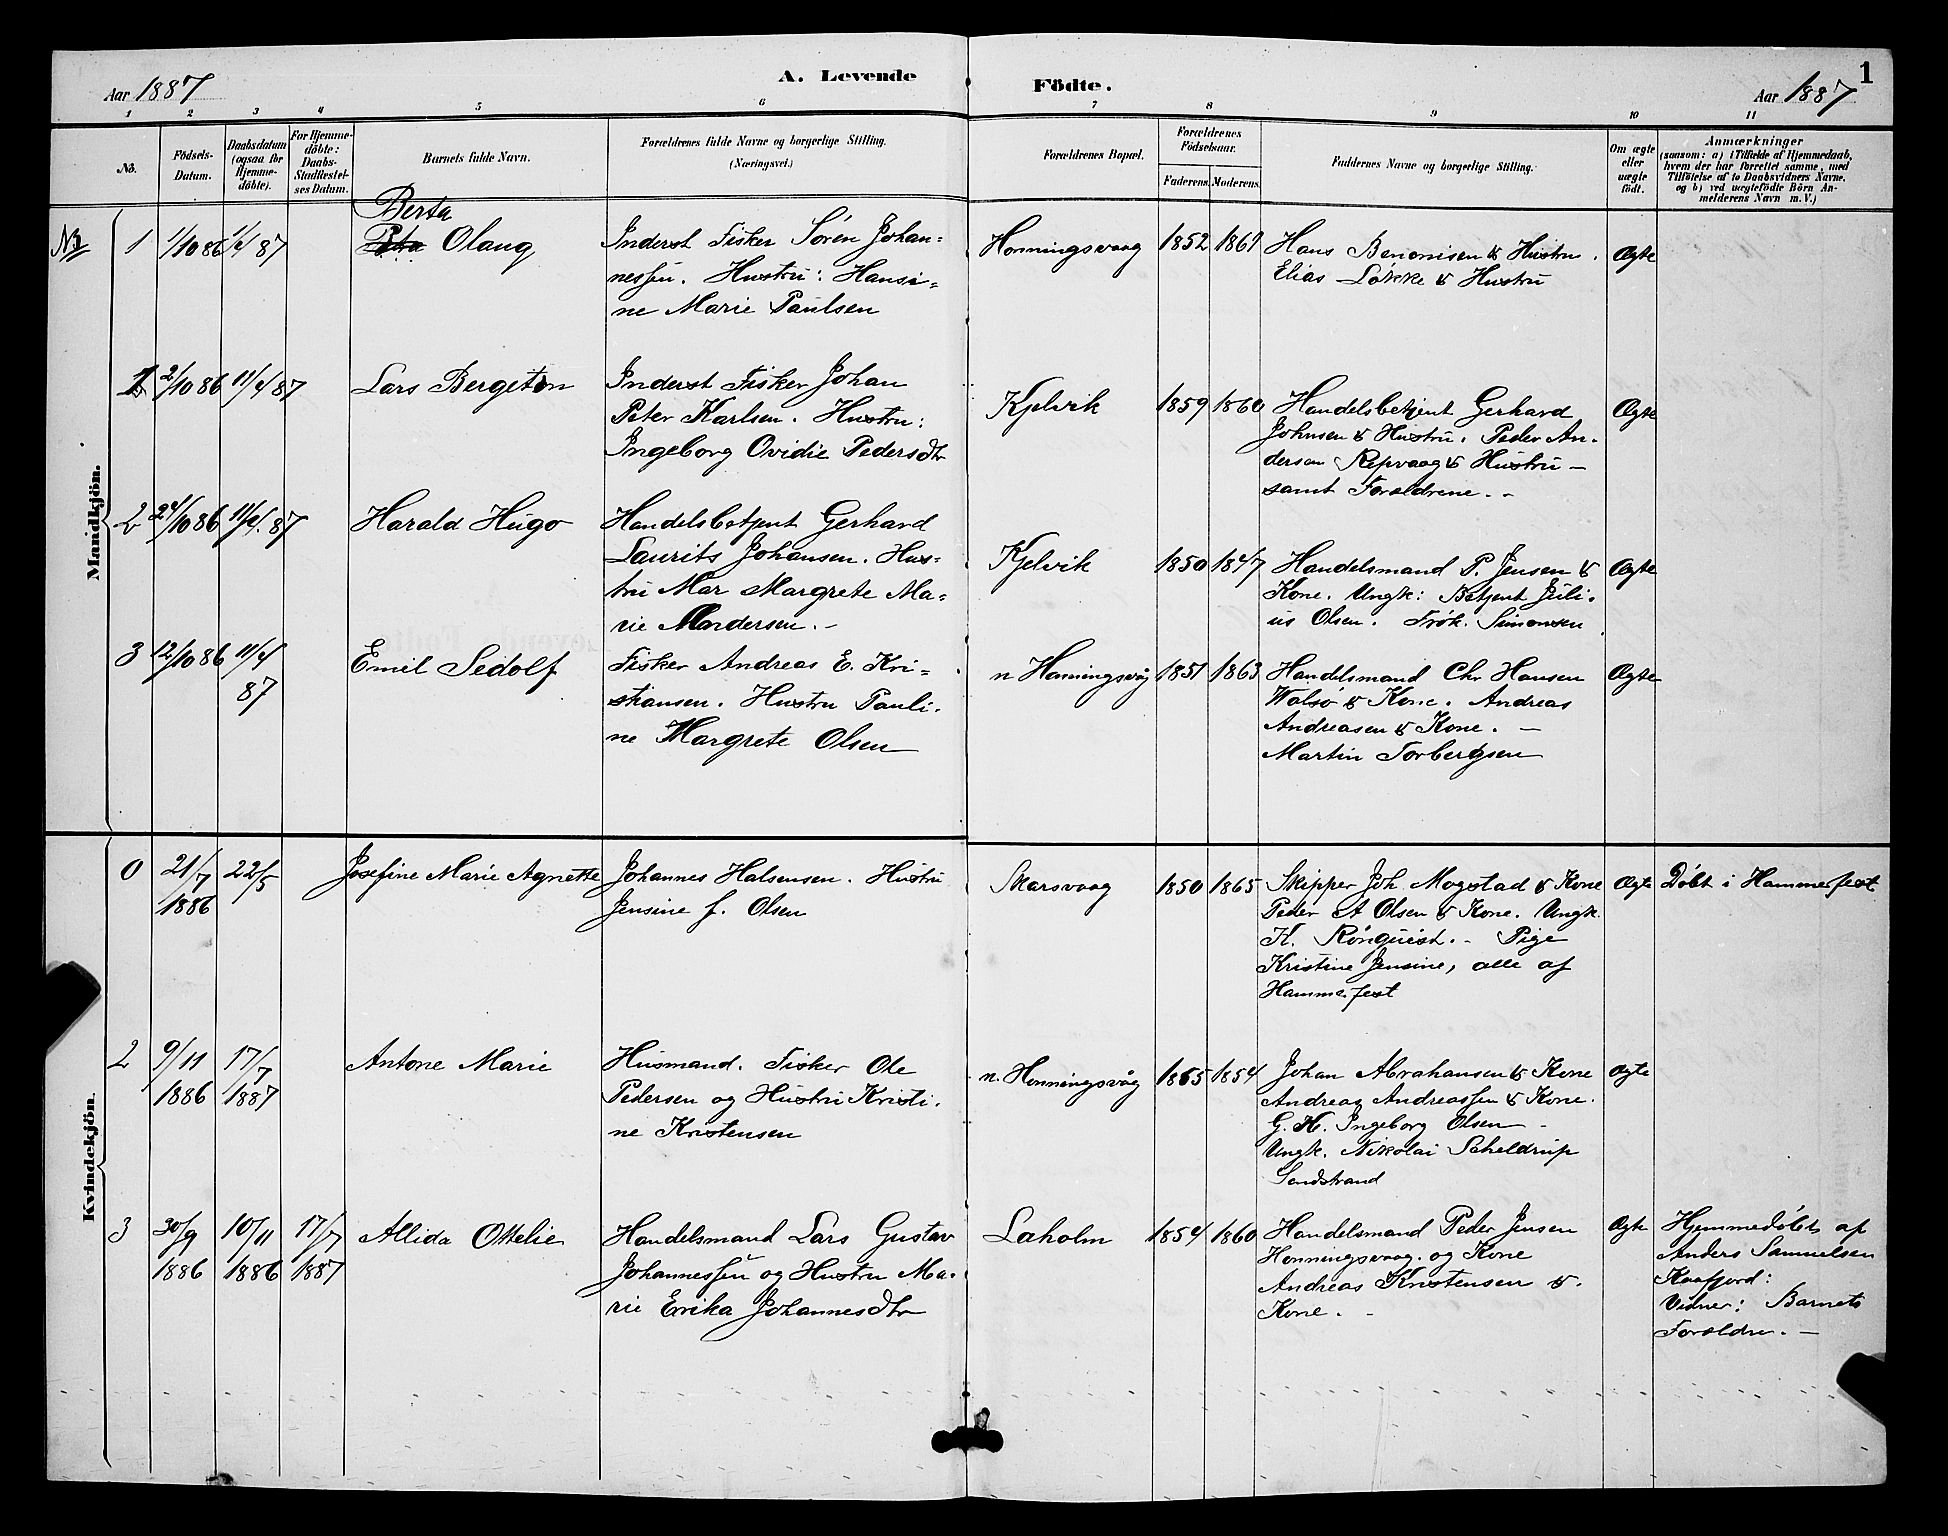 Aar 1887
A. Levende
Födte.
Aar 1887
1
1 2 3 4 5 6 7 8 9 10 11
No.
Födsels-
Datum.
Daabsdatum
(ogsaa for
Hjemme-
döbte).
For Hjemme-
döbte:
Daabs-
Stadfæstel-
ses Datum.
Barnets fulde Navn.
Forældrenes fulde Navne og borgerlige Stilling.
(Næringsvei.)
Forældrenes Bopæl.
Forældrenes
Födselsaar.
Faderens. Moderens.
Faddernes Navne og borgerlige Stilling.
Om ægte
eller
uægte
födt.
Anmærkninger
(saasom: a) i Tilfælde af Hjemmedaab,
hvem der har forrettet samme, med
Tilföielse af to Daabsvidners Navne,
og b) ved uægtefödte Börn An-
melderens Navn m. V.)
Mandkjön.
Berta
1 1/10 86 1/4 87 Olaug
Inderst Fisker Søren Johan=
nessen. Hustru: Hansi=
ne Marie Paulsen
Honningsvaag 1852 1861
Hans Benonisen & Hustru.
Elias Løkke & Hustru
Ægte
2/10 86 11/4 87 Lars Bergeton
Inderst Fisker Johan
Peter Karlsen. Hustru:
Ingeborg Ovidie Pedersdtr
Kjelvik 1859 1860
Handelsbetjent Gerhard
Johnsen & Hustru. Peder An-
dersen Repvaag & Hustru –
samt Forældrene. -
Ægte
2 24/10 86 11/4 87 Harald Hugo
Handelsbetjent Gerhard
Laurits Johansen. Hus=
tru Mar Margrete Ma=
rie Andersen. –
Kjelvik 1850 1847
Handelsmand P. Jensen &
Kone. Ungk: Betjent Juli-
us Olsen. Frøk. Simonsen
Ægte
3 12/10 86 11/4
87
Emil Sedolf
Fisker Andreas E. Kri=
stiansen. Hustru Pauli-
ne Margrete Olsen
n Honningsvåg 1851 1863
Handelsmand Chr Hansen
Walsø & Kone. Andreas
Andreasen & Kone. –
Martin Torbergsen
Ægte
Kvindekjön.
0 21/7
1886
22/5
Josefine Marie Agnette
Johannes Halsensen. Hustru
Jensine f. Olsen
Skarsvaag 1850 1865
Skipper Joh. Mogstad & Kone
Peder A Olsen & Kone. Ungk.
K. Rönquist. - Pige
Kristine Jensine, alle af
Hammerfest
Ægte
Døbt i Hammerfest
2 9/11
1886
17/7
1887
Antone Marie
Husmand. Fisker Ole
Pedersen og Hustru Kristi-
ne Kristensen
n. Honningsvåg 1865 1854
Johan Abrahansen & Kone
Andreas Andreassen & Kone.
G. H. Ingeborg Olsen -
Ungk. Nikolai Scheldrup
Sandstrand
Ægte
3 30/9
1886
10/11
1886
17/7
1887
Allida Ottelie
Handelsmand Lars Gustav
Johannessen og Hustru Ma-
rie Erika Johannesdtr
Laholm 1854 1860
Handelsmand Peder Jensen
Honningsvaag. og Kone
Andreas Kristensen &
Kone. -
Ægte
Hjemmedøbt af
Anders Samuelsen
Kaafjord:
Vidner: Barnets
Forældre. –